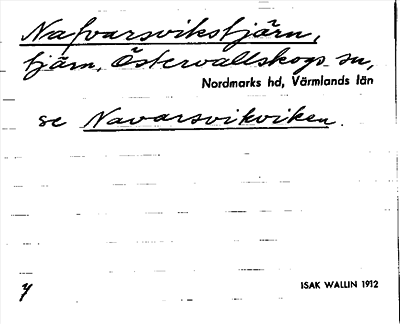 Nafvarsvikstjärn,
tjärn, Östervallskogs sn,
Nordmarks hd, Värmlands län
se Navarsvikviken.
y
ISAK WALLIN 1912